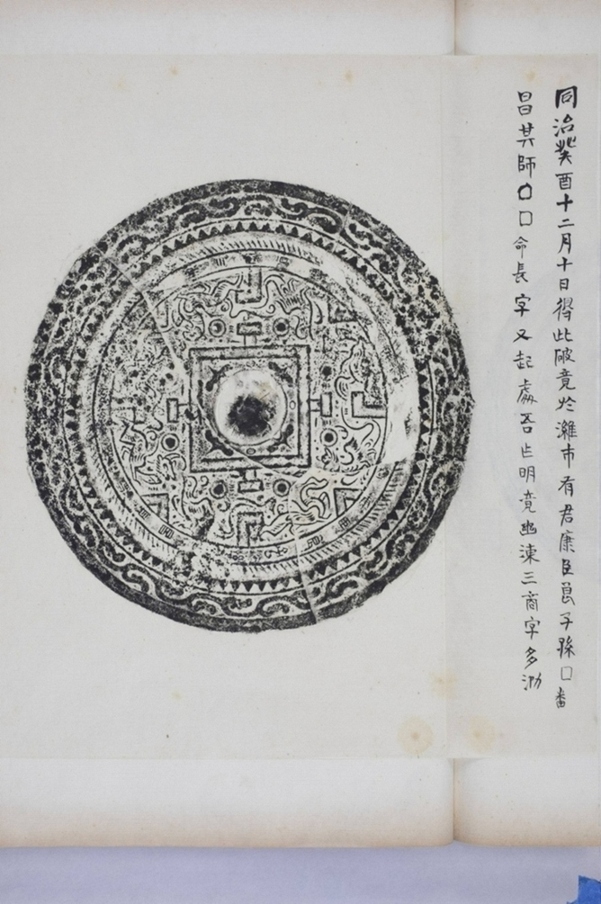 同治癸酉十二月十日得此破竟於濰市有君康臣良子孫□番
昌其師□□命長字又起處吾乍明竟幽湅三商字多泐